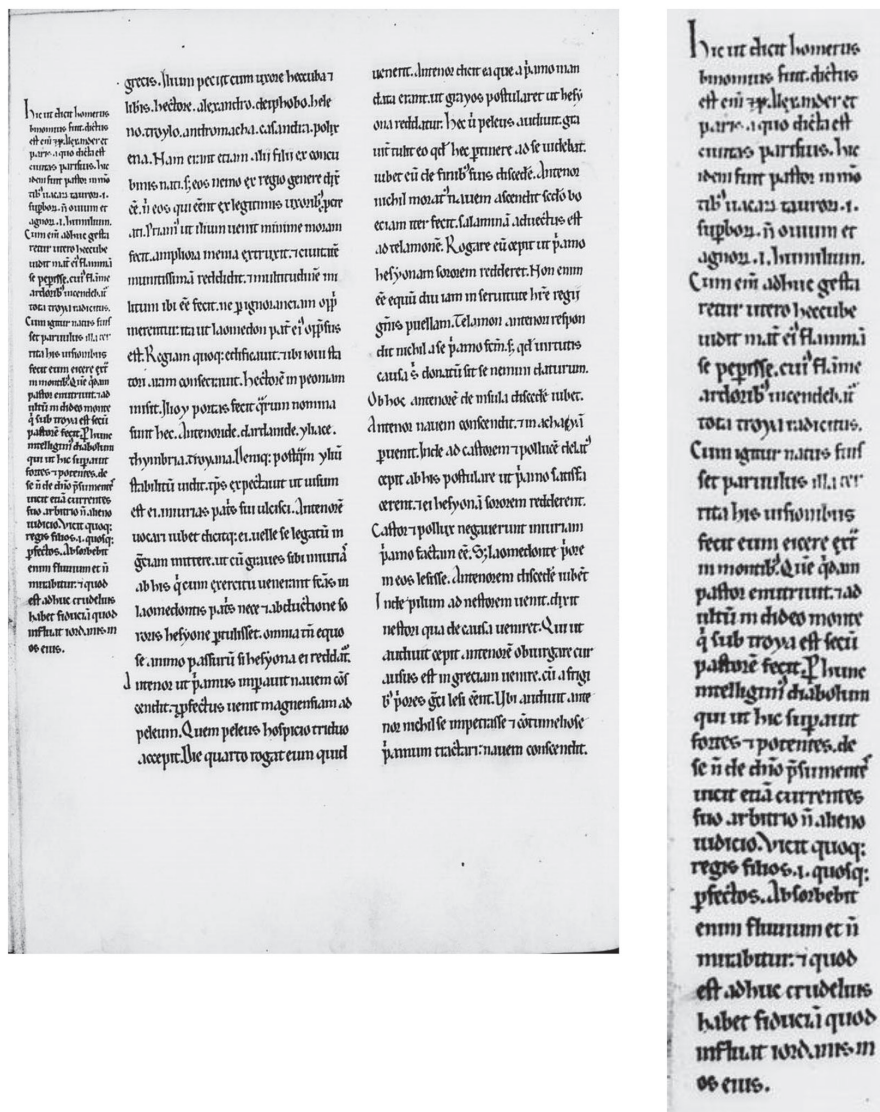 hic ut dicit homerus
binomius fuit. dictus
est eni
paris. a quo dicta est
ciuitas parisius. hic
idem fuit pastor in mo
Cum eni adhuc gesta
retur utero heccube
uidit mat ei flammā
se peperisse. cui flame
ardorib' incendebat
tota troya radicitus.
Cum igitur natus fuis
set paruulus
rita his uisionibus
fecit eum eicere
in montib'. Que qdam
pastor enutriuit. ⁊ ad
q sub troya est secū
pastorē fecit. P hunc
intelligim' diabolum
qui ut hic superauit
fortes ⁊ potentes. de
se n de dño psumentes
uicit etiā currentes
suo arbitrio n alieno
iudicio. Vicit quoq;
regis filios. i. quosq;
pfectos. Absorbebit
enim fluuium et n
mirabitur. ⁊ quod
est adhuc crudelius
habet fiduciā quod
influat iordanis in
os eius.
grecis. Ilium peciit cum uxore heccuba ⁊
libis. hectore. alexandro. deiphobo. hele
no. troylo. andromacha. casandra. polix
ena. Nam erant etiam alii filii ex concu
binis nati. s; eos nemo ex regio genere dix
ee. n eos qui eent ex legitimis uxorib; pcre
ati. Priam' ut ilium uenit minime moram
fecit. ampliora menia extruxit. ⁊ ciuitatē
munitissimā reddidit. ⁊ multitudinē mi
litum ibi ee fecit. ne p ignoranciam opp
merentur. ita ut laomedon pat ei' oppssus
est. Regiam quoq; edificauit. ⁊ ibi ioui sta
tori aram consecrauit. Hectorē in peoniam
misit. Ilioy portas fecit qrum nomina
sunt hec. Antenoride. dardanide. yliace.
thymbria. troyana. Deniq; postqm yliū
stabilitū uidit. tps expectauit ut uisum
est ei. iniurias patis sui ulcisci. Antenorē
uocari iubet dicitq; ei. uelle se legatū in
gciam mittere. ut cū graues sibi iniuria
ab his q cum exercitu uenerant fcas in
laomedontis patis nece ⁊ abductione so
roris hesyone ptulisset. omnia tn equo
se animo passurū si hesyona ei reddat.
Antenor ut pamus impauit nauem cos
cendit. ⁊ pfectus uenit magnensiam ad
peleum. Quem peleus hospicio triduo
accepit. Die quarto rogat eum quid
uenerit. Antenor dicit ea que a pamo man
data erant. ut grayos postularet ut hesy
ona reddatur. Hec u peleus audiuit. gra
uit tulit eo qd' hec ptinere ad se uidebat.
iubet eū de finib' suis discede. Antenor
nichil morat' nauem ascendit sedo bo
eciam iter fecit. salaminā aduectus est
ad telamonē. Rogare eū cepit ut pamo
hesyonam sororem redderet. Non enim
ee equū diu iam in seruitute hre regii
gnis puellam. Telamon antenori respon
dit nichil a se pamo fctm. s; qd uirtutis
causa s donatū sit se nemini daturum.
Ob hoc antenorē de insula discede iubet.
Antenor nauem conscendit. ⁊ in achayā
puenit. Inde ad castorem ⁊ pollucē delat'
cepit ab his postulare ut pamo satisfa
cerent. ⁊ ei hesyonā sororem redderent.
Castor ⁊ pollux negauerunt iniuriam
pamo factam ee. S; laomedonte pore
m eos lesisse. Antenorem discede iubet
Inde pilum ad nestorem uenit. dixit
nestori qua de causa ueniret. Qui ut
audiuit cepit antenorē obiurgare cur
ausus est in greciam uenire. cū a frigi
b' pores gci lesi eent. Ubi audiuit ante
nor nichil se impetrasse ⁊ cotumeliose
pamum tractari: nauem conscendit.
hic ut dicit homerus
binomius fuit. dictus
est eni
paris. a quo dicta est
ciuitas parisius. hic
idem fuit pastor in mo
tib' uacarum taurorum. i.
supborum. n ouium et
agnorum. i. humilium.
Cum eni adhuc gesta
retur utero heccube
uidit mat ei' flammā
se peperisse. cui' flame
ardorib' incendebat
tota troya radicitus.
Cum igitur natus fuis
set paruulus
rita his uisionibus
fecit eum eicere
in montib'. Que qdam
pastor enutriuit. ⁊ ad
ultū in dideo monte
q sub troya est secū
pastorē fecit. P hunc
intelligim' diabolum
qui ut hic superauit
fortes ⁊ potentes. de
se n de dño psumentes
uicit etiā currentes
suo arbitrio n alieno
iudicio. Vicit quoq;
regis filios. i. quosq;
pfectos. Absorbebit
enim fluuium et n
mirabitur. ⁊ quod
est adhuc crudelius
habet fiduciā quod
influat iordanis in
os eius.